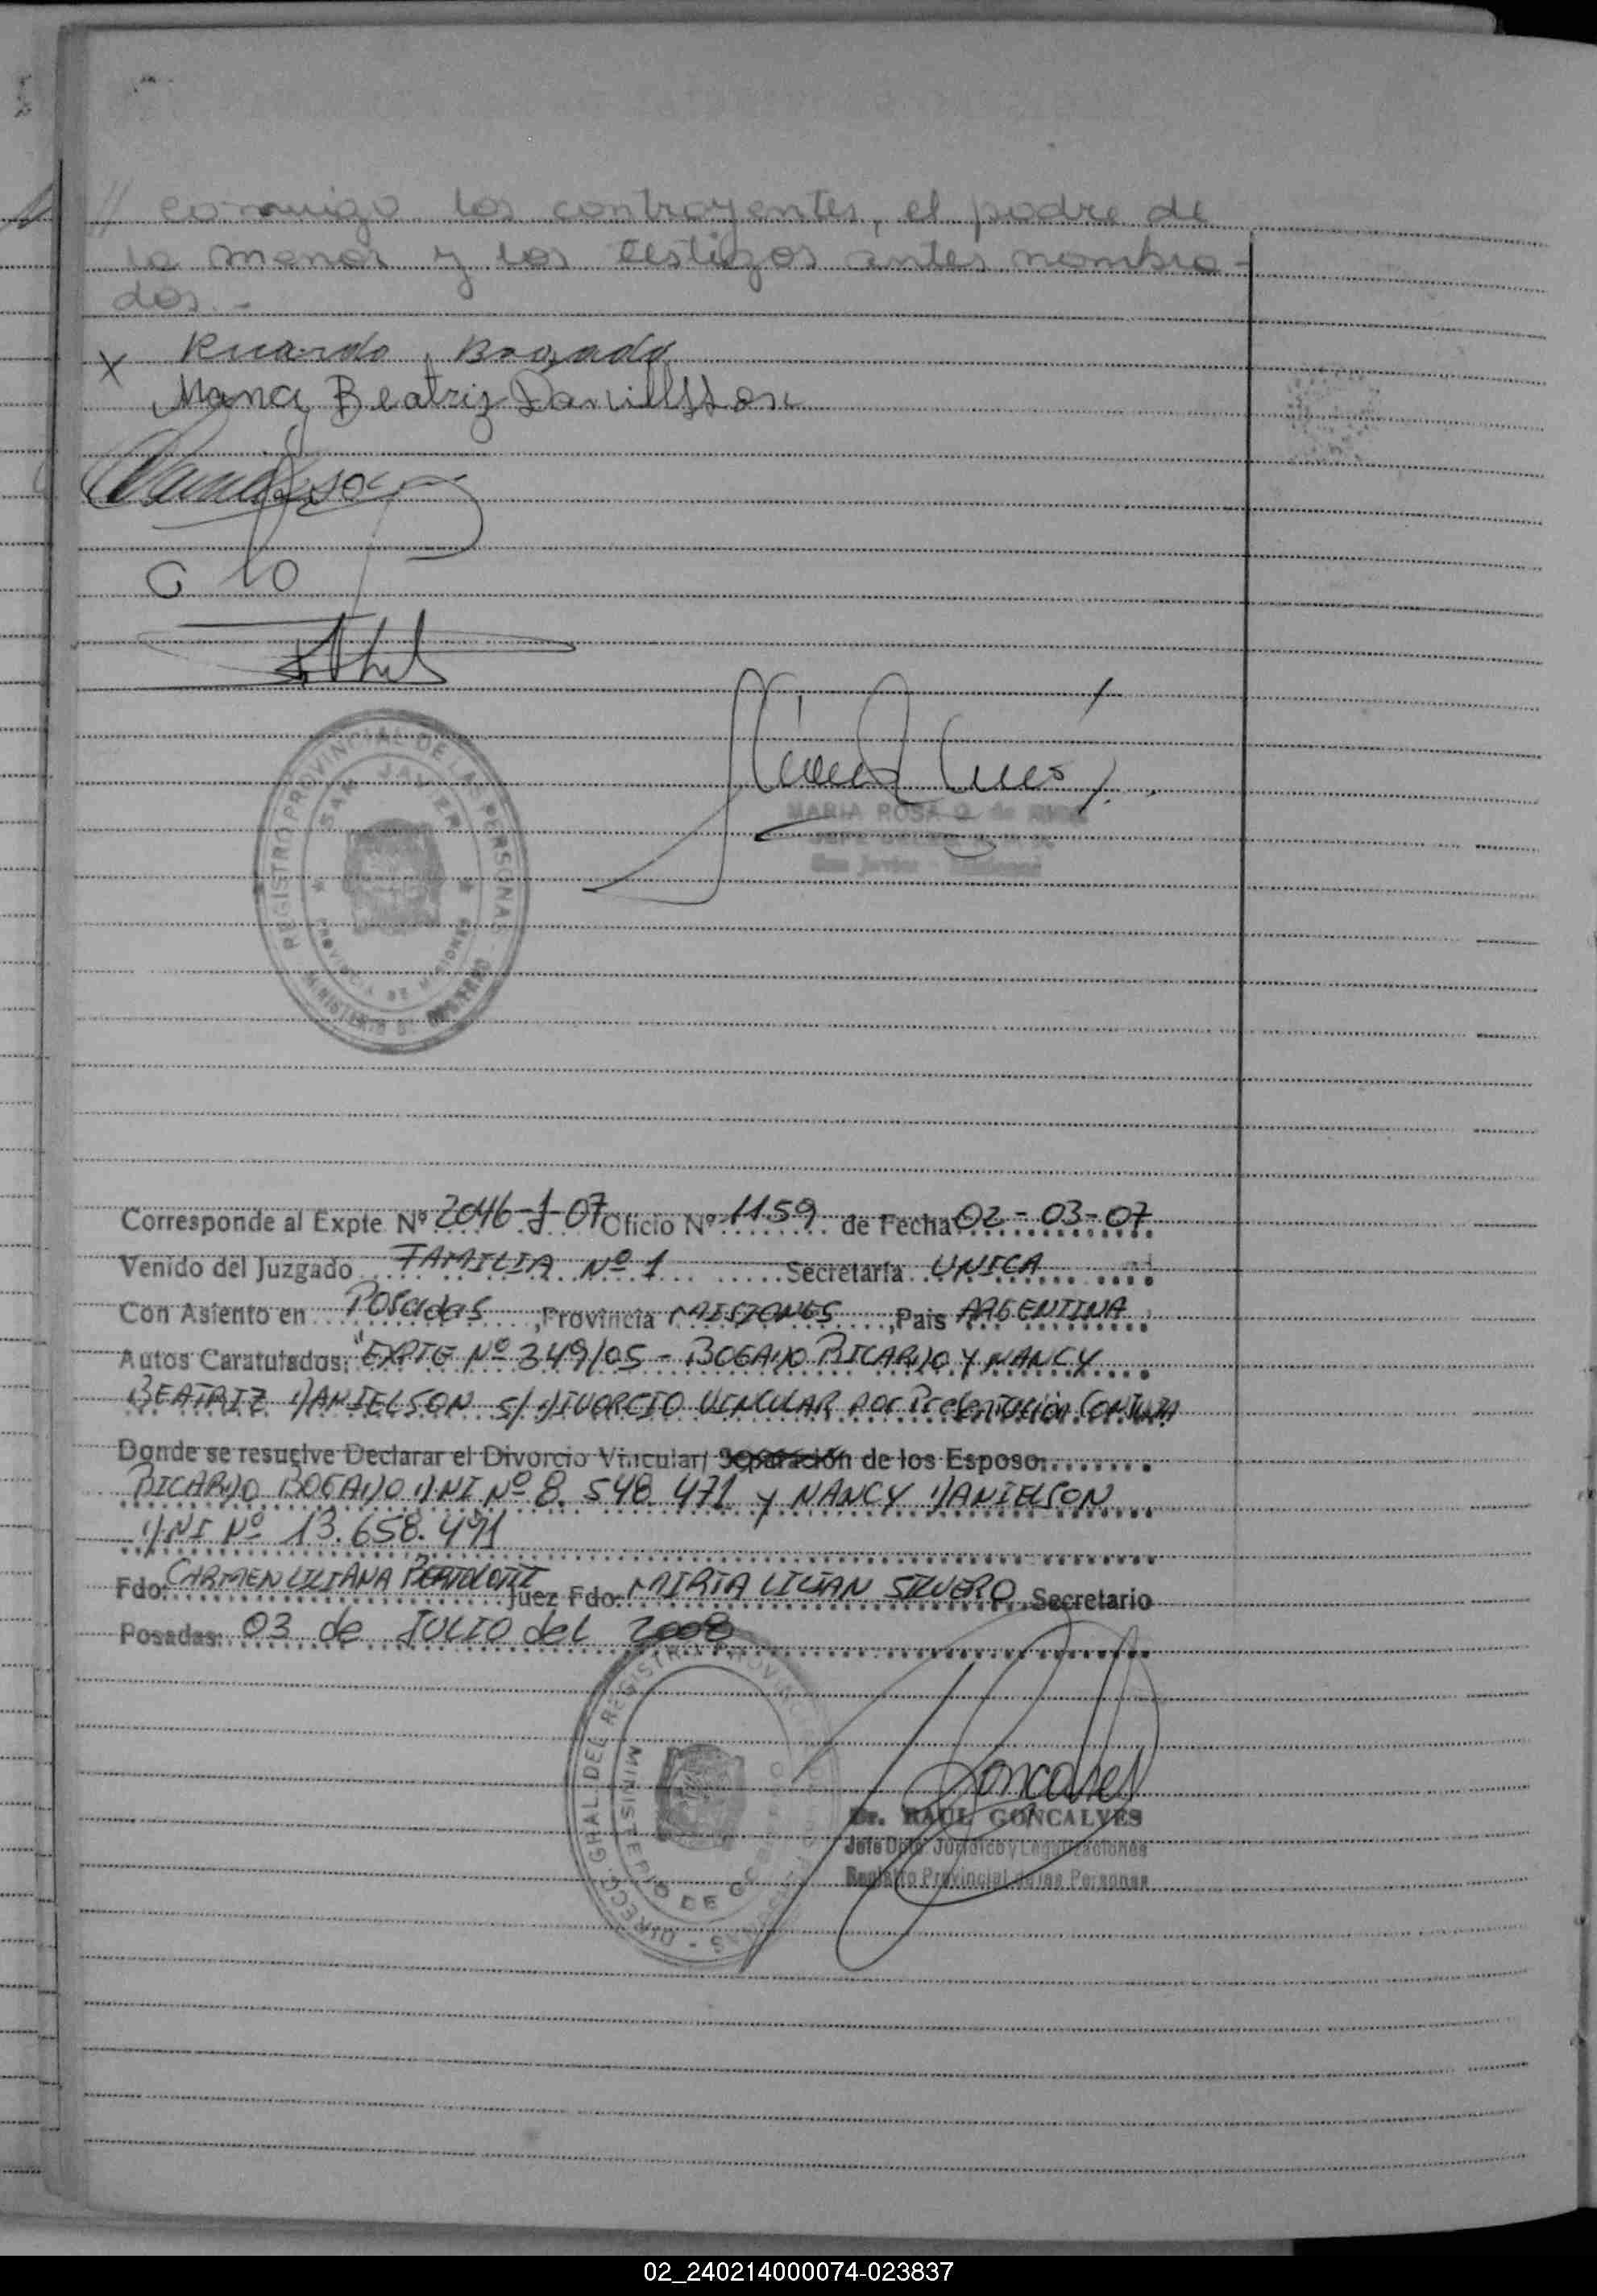 // conmigo los contrayentes, el padre de
la menor y los testigos antes nombra-
dos.-
x Ricardo Bogado
Nanci Beatriz Danielsson
REGISTRO PROVINCIAL DE LAS PERSONAS
SAN JAVIER
PROVINCIA DE MISIONES
MINISTERIO DE GOBIERNO
MARIA ROSA Q. de
San Javier Misiones
Corresponde al Expte Nº 2046-J-07 Oficio Nº 1159 de Fecha 02-03-07
Venido del Juzgado FAMILIA Nº 1 Secretaría UNICA
Con Asiento en Posadas, Provincia MISIONES, Pais ARGENTINA
Autos Caratulados: "EXPTE Nº 349/05 - BOGADO RICARDO Y NANCY
BEATRIZ DANIELSON S/ DIVORCIO VINCULAR por Presentación Conjunta
Donde se resuelve Declarar el Divorcio Vincular/ Separación de los Esposo:
RICARDO BOGADO DNI Nº 8.548.471 y NANCY DANIELSON
DNI Nº 13.658.491
Fdo: CARMEN LILIANA BERTOLOTTI Juez Fdo: MIRTA LILIAN SILVERO Secretario
Posadas: 03 de JULIO del 2008
DIRECC. GRAL. DEL REGISTRO PROVINCIAL DE LAS PERSONAS
MINISTERIO DE GOBIERNO
Goncalves
Dr. RAUL GONCALVES
Jefe Dpto. Jurídico y Legalizaciones
Registro Provincial de las Personas
02_240214000074-023837